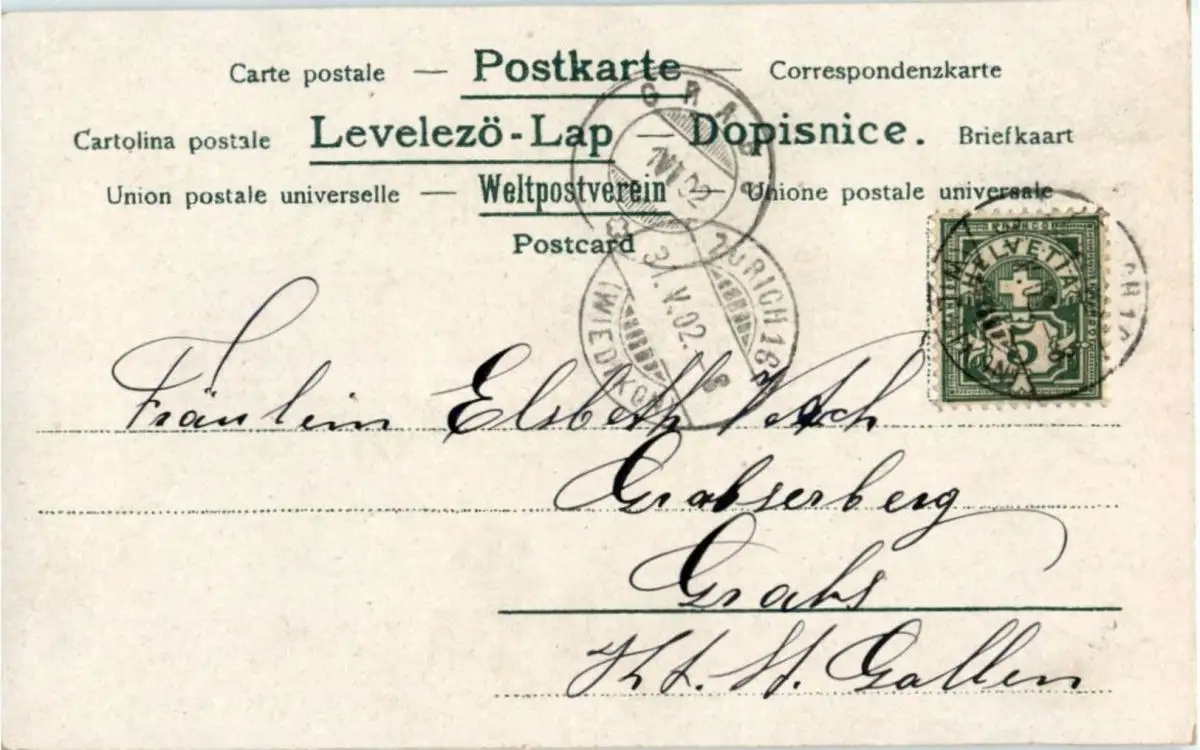 Carte postale — Postkarte — Correspondenzkarte
Cartolina postale Levelezö-Lap — Dopisnice. Briefkaart
Union postale universelle — Weltpostverein — Unione postale universale
Postcard
GRABS
1.VI.02
ZÜRICH 16
31.V.02. 8
(WIEDIKON)
HELVETIA
5
Fräulein Elsbeth
Grabserberg
Grabs
Kt. St. Gallen